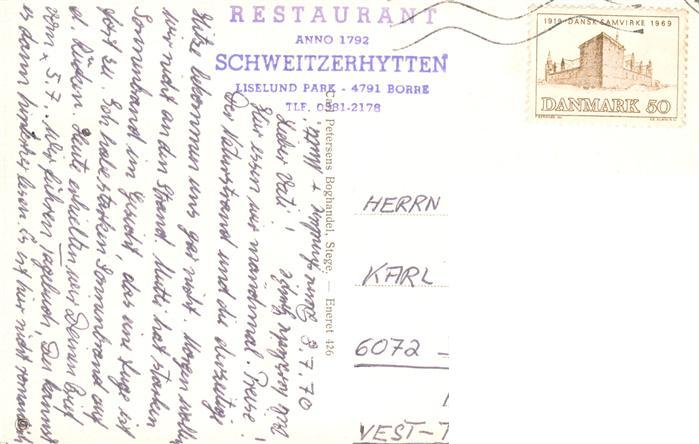 RESTAURANT
ANNO 1792
SCHWEITZERHYTTEN
LISELUND PARK - 4791 BORRE
TLF. 0381-2178
1919 · DANSK SAMVIRKE 1969
DANMARK 50
Petersens Boghandel, Stege. — Eneret 426
HERRN
KARL
6072
VEST-
8.7.70
Lieber Vati!
Hier essen wir manchmal. Preise!
Der Naturstrand und die derzeitige
Hitze bekommen uns gar nicht. Morgen wollen
wir nicht an den Strand. Mutti hat starken
Sonnenbrand im Gesicht, das eine Auge ist
fast zu. Ich habe starken Sonnenbrand auf
d. Rücken. Heute erhielten wir Deinen Brief
vom 5.7. Wir führen Tagebuch, Du kannst
es dann hinterher lesen. Es ist hier nicht